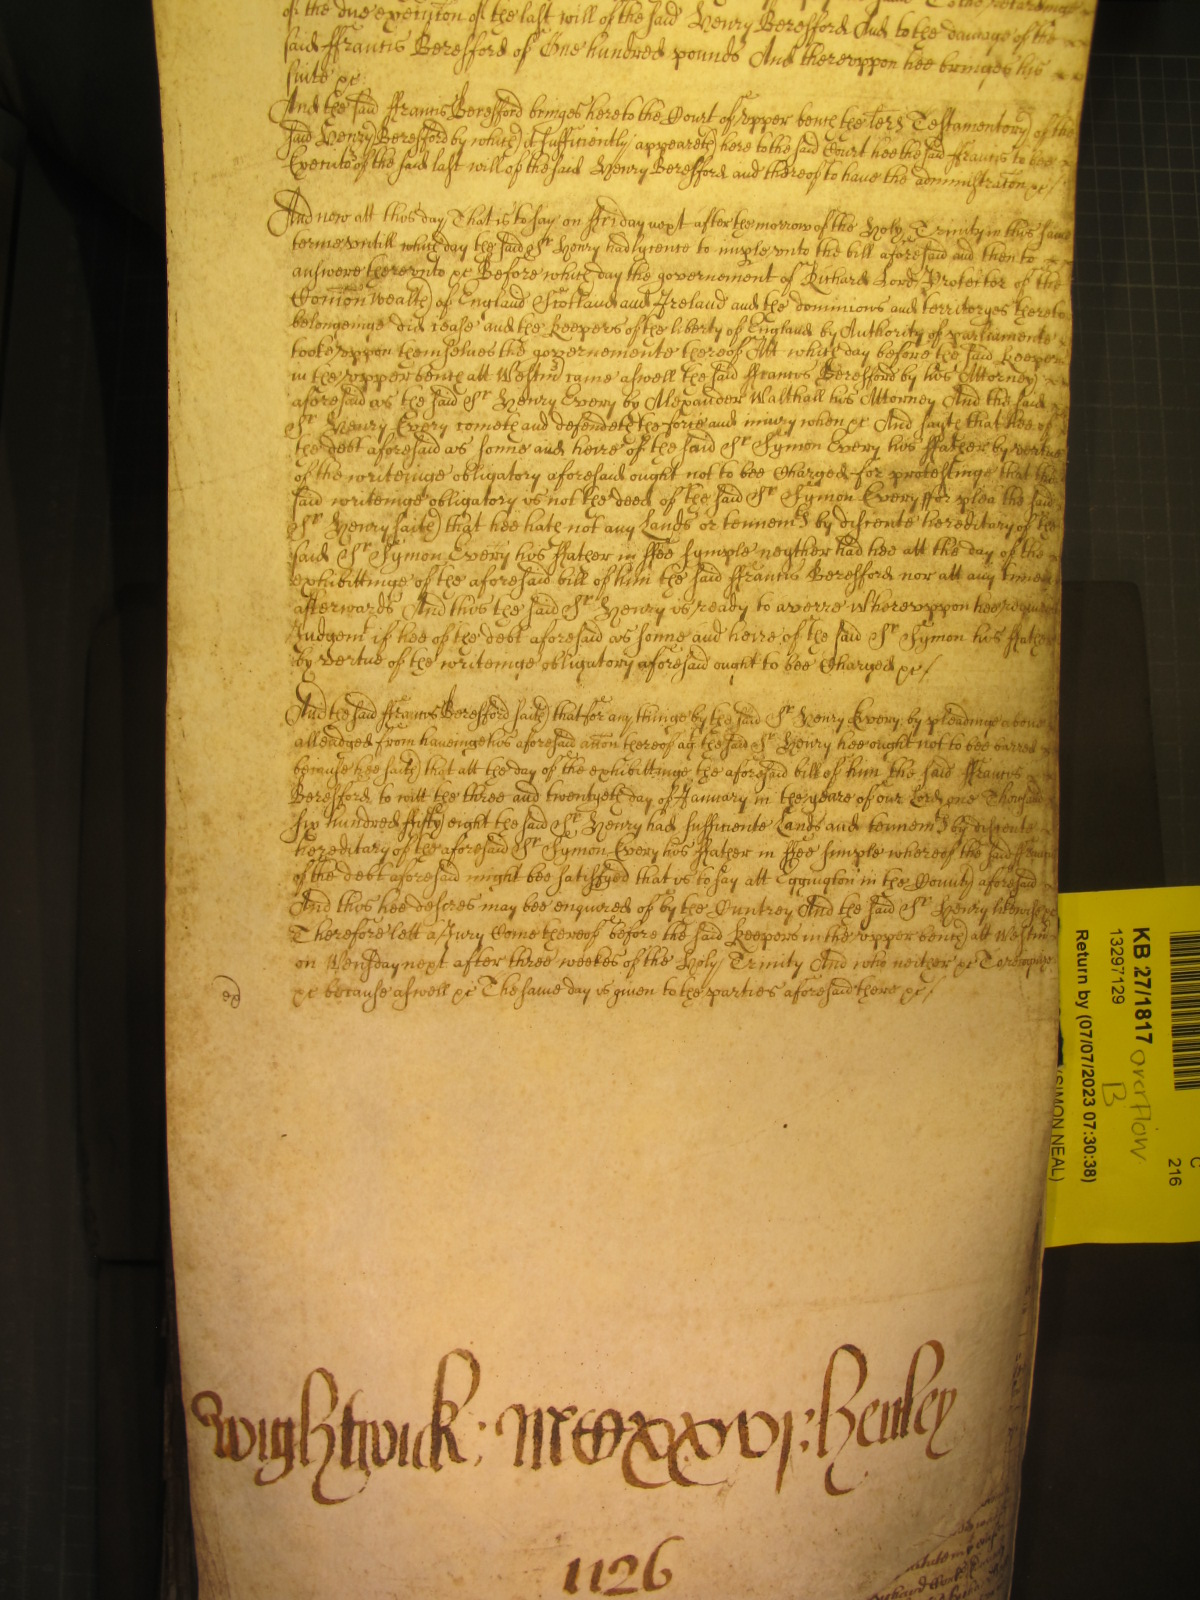 of the due execution of the last will of the said Henry Beresford And to the damage of the
said ffrancis Beresford of One hundred pounds And thereuppon hee bringes his
suite &c
And the said ffrancis Beresford bringes here to the Court of upper bench the lers Testamentory of the
said Henry Beresford by which it sufficiently appeareth here to the said Court hee the said ffrancis to bee
Executor of the said last will of the said Henry Beresford and thereof to have the administracon &c/
And now att this day That is to say on ffriday next after the morrow of the Holy Trinity in this same
terme untill which day the said Sr Henry had lycence to imple unto the bill aforesaid and then to
answere thereunto &c Before which day the governement of Richard Lord Protector of the
Comon Wealth of England Scotland and Ireland and the dominions and territoryes thereto
belongeinge did cease and the Keepers of the liberty of England by Authority of parliamente
tooke uppon themselves the governemente thereof Att which day before the said Keepers
in the upper bench att Westmr came aswell the said ffrancis Beresford by his Attorney
aforesaid as the said Sr Henry Every by Alexander Walthall his Attorney And the said
Sr Henry Every cometh and defendeth the force and iniury when &c And sayth that hee of
the debt aforesaid as sonne and heire of the said Sr Symon Every his ffather by vertue
of the writeinge obligatory aforesaid ought not to bee Charged for protestinge that the
said writeinge obligatory is not the deed of the said Sr Symon Every ffor plea the said
Sr Henry saith that hee hath not any Lands or tennemts by discente hereditary of the
said Sr Symon Every his ffather in ffee symple neyther had hee att the day of the
exhibittinge of the aforesaid bill of him the said ffrancis Beresford nor att any time
afterwards And this the said Sr Henry is ready to averre Whereuppon hee
Judgemt if hee of the debt aforesaid as sonne and heire of the said Sr Symon his ffather
by vertue of the writeinge obligatory aforesaid ought to bee Charged &c/
And the said ffrancis Beresford saith that for any thinge by the said Sr Henry Every by pleadinge above
alleadged from haveinge his aforesaid accon thereof agt the said Sr Henry hee ought not to bee barred
because hee saith that att the day of the exhibittinge the aforesaid bill of him the said ffrancis
Beresford to witt the three and twentyeth day of January in the yeare of our Lord one Thousand
six hundred ffifty eight the said Sr Henry had sufficiente Lands and tennemts by discente
hereditary of the aforesaid Sr Symon Every his ffather in ffee simple whereof the said ffrancis
of the debt aforesaid might bee satisfyed that is to say att Eggington in the County aforesaid
And this hee desires may bee enquired of by the Cuntrey And the said Sr Henry likewise &c
Therefore lett a Jury Come thereof before the said Keepers in the upper bench att Westmr
on Wensday next after three weekes of the Holy Trinity And who neither &c To recognize
&c because aswell &c The same day is given to the parties aforesaid there &c/
Wightwick: MCXXVI: Henley
1126
KB 27/1817
13297129
Return by (07/07/2023 07:30:38)
(SIMON NEAL)
overflow
B
C
216